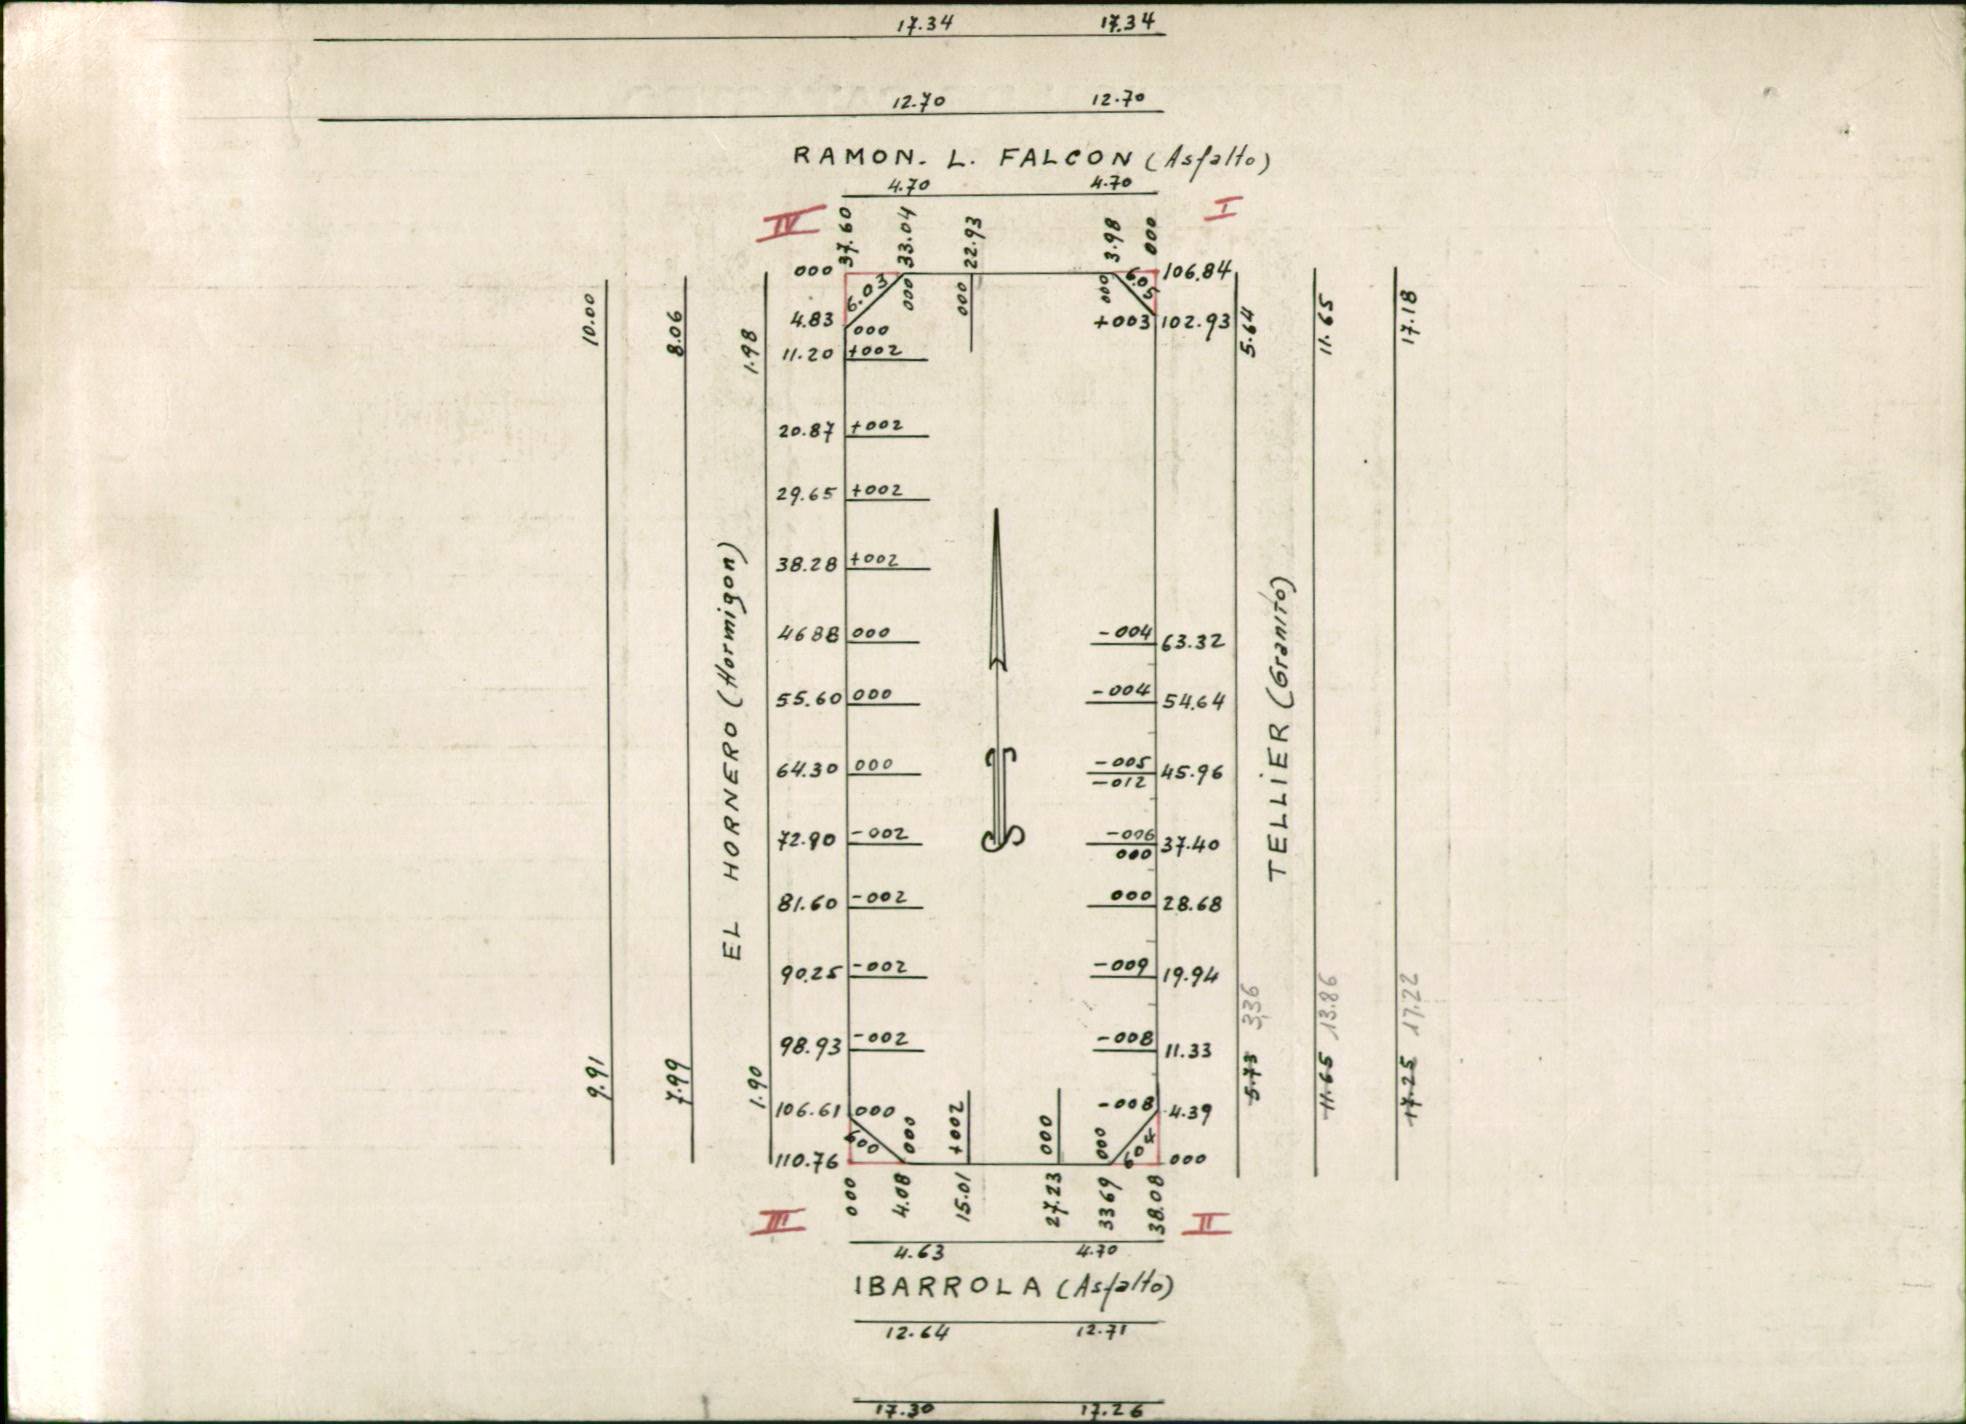 17.34 17.34
12.70 12.70
RAMON. L. FALCON (Asfalto)
4.70 4.70
IV I
37.60 33.04 22.93 3.98 000
000 106.84
6.03 000 000 000 6.05
4.83 000 +003 102.93
11.20 +002
10.00 8.06 1.98 5.64 11.65 17.18
20.87 +002
29.65 +002
38.28 +002
EL HORNERO (Hormigon)
TELLIER (Granito)
4688 000 -004 63.32
55.60 000 -004 54.64
64.30 000 -005 45.96
-012
72.90 -002 -006 37.40
000
81.60 -002 000 28.68
90.25 -002 -009 19.94
98.93 -002 -008 11.33
9.91 7.99 1.90 5.73 3,36 11.65 13.86 17.25 17.22
106.61 000 -008 4.39
600 000 +002 000 000 604
110.76 000
000 4.08 15.01 27.23 3369 38.08
III II
4.63 4.70
IBARROLA (Asfalto)
12.64 12.71
17.30 17.26